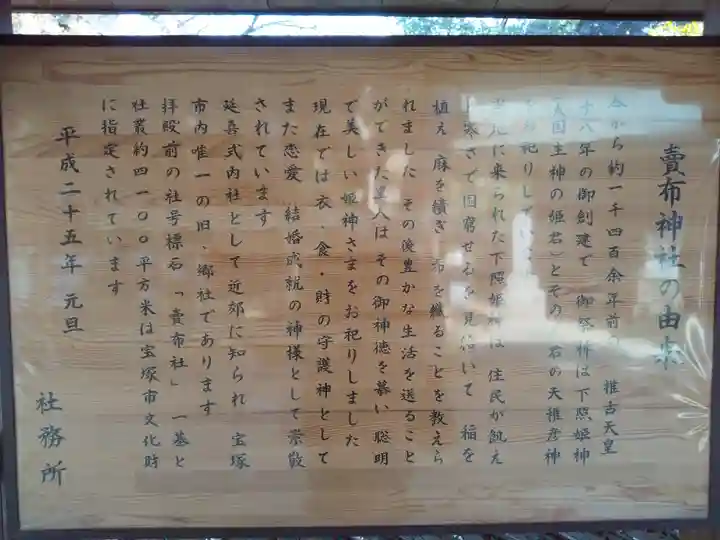 賣布神社の由来
今から約一千四百余年前の 推古天皇
十八年の御創建で 御祭神は下照姫神
大国主神の姫君）とその 君の天稚彦神
お祀りして
に来られた下照姫神は 住民が飢え
寒さで困窮せるを見 いて 稲を
植え 麻を績ぎ 布を織ることを教えら
れました その後豊かな生活を送ること
ができた里人は その御神徳を慕い 聡明
で美しい姫神さまをお祀りしました
現在では衣・食・財の守護神として
また恋愛 結婚成就の神様として崇敬
されています
延喜式内社として近郊に知られ 宝塚
市内唯一の旧・郷社であります
拝殿前の社号標石「賣布社」一基と
社叢約四一〇〇平方米は宝塚市文化財
に指定されています
平成二十五年 元旦
社務所